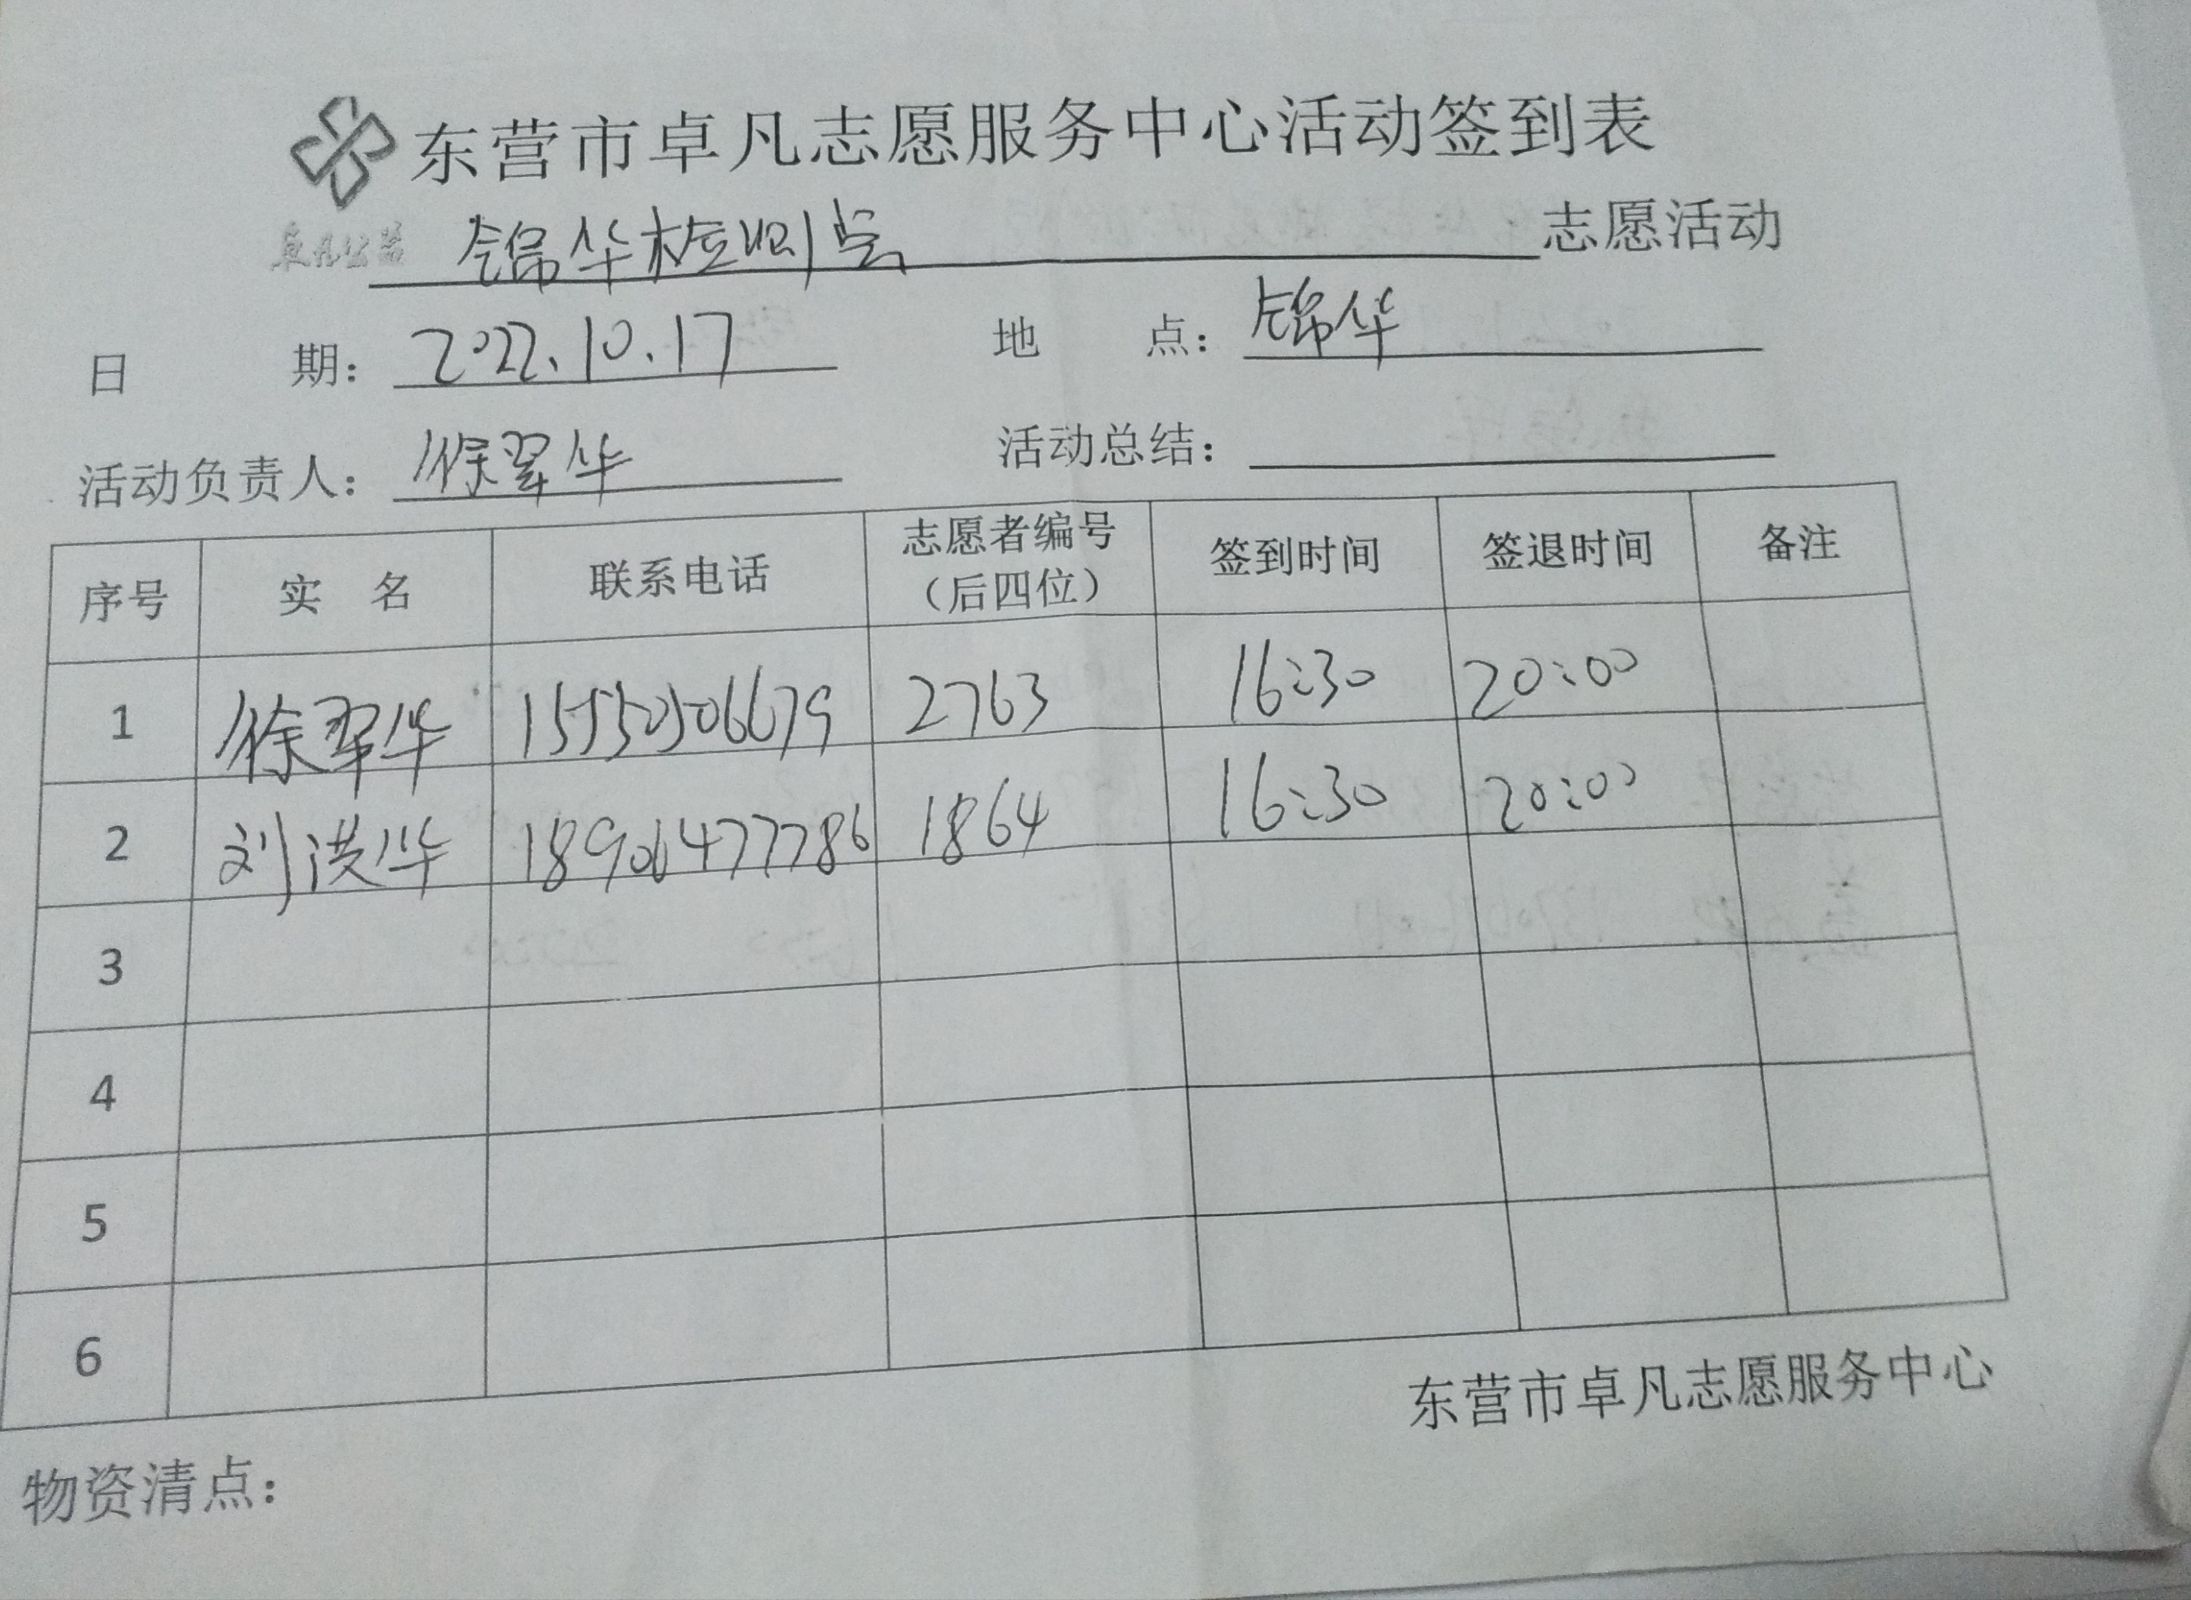 东营市卓凡志愿服务中心活动签到表
卓凡公益 锦华检测点 志愿活动
日 期： 2022.10.17 地 点： 锦华
活动负责人： 徐翠华 活动总结：
序号 实 名 联系电话 志愿者编号（后四位） 签到时间 签退时间 备注
1 徐翠华 15550506679 2763 16:30 20:00
2 刘洪华 18906477786 1864 16:30 20:00
3
4
5
6
东营市卓凡志愿服务中心
物资清点：